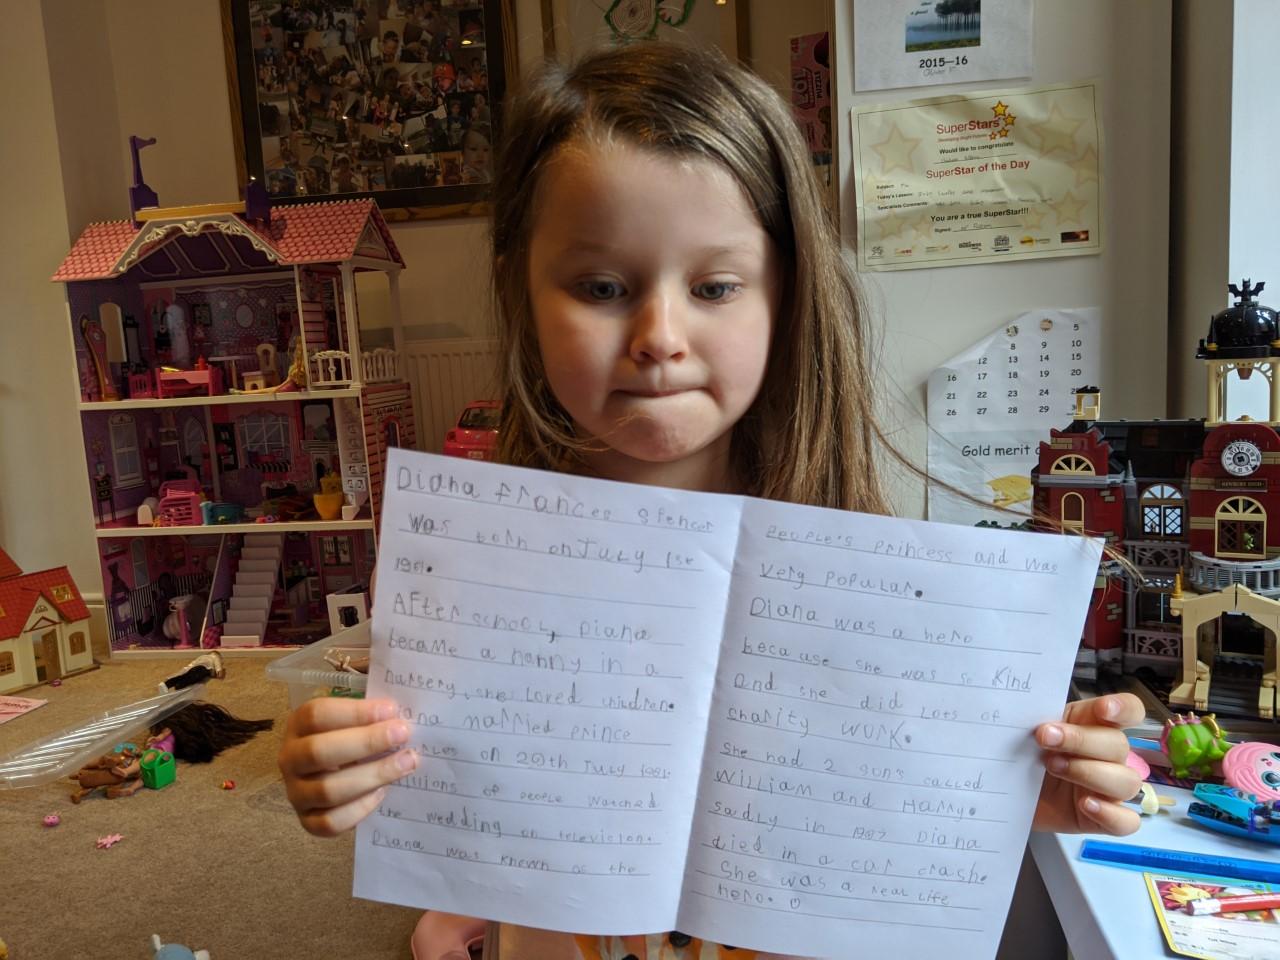 2015—16
SuperStars
Would like to congratulate
SuperStar of the Day
Subject:
Today's Lesson:
Specialists Comments:
You are a true SuperStar!!!
Signed:
PUZZLE
5
8 9 10
12 13 14 15
16 17 18 19 20
21 22 23 24 25
26 27 28 29
Gold merit
Diana frances spencer
was born on July 1st
1961.
After school, Diana
became a nanny in a
nursery, she loved children.
iana married prince
arles on 29th July 1981.
illions of people watched
the wedding on television.
Diana was known as the
People's princess and was
very popular.
Diana was a hero
because she was so kind
and she did lots of
charity work.
She had 2 son's called
William and Harry.
Sadly in 1997 Diana
died in a car crash.
She was a real life
hero.